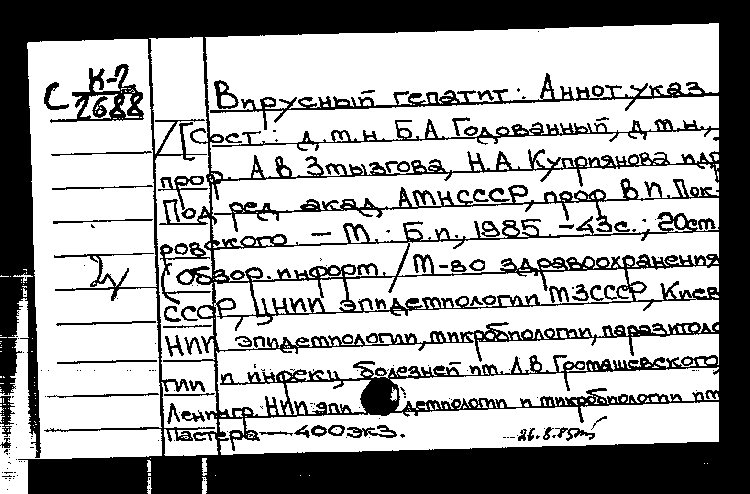 С К-7/2688
Вирусный гепатит: Аннот. указ.
/[Сост.: д.м.н. Б.А. Годованный, д.м.н.,
проф. А.В. Змызгова, Н.А. Куприянова и др
Под ред. акад. АМНСССР, проф В.И. Пок-
ровского. – М.: Б.и., 1985. – 43с.; 20см.
(Обзор. информ. / М-во здравоохранения
СССР, ЦНИИ эпидемиологии МЗСССР, Киев
НИИ эпидемиологии, микробиологии, паразитоло
гии и инфекц. болезней им. Л.В. Громашевского,
Ленингр. НИИ эпидемиологии и микробиологии им
Пастера – 400экз.
26.8.85